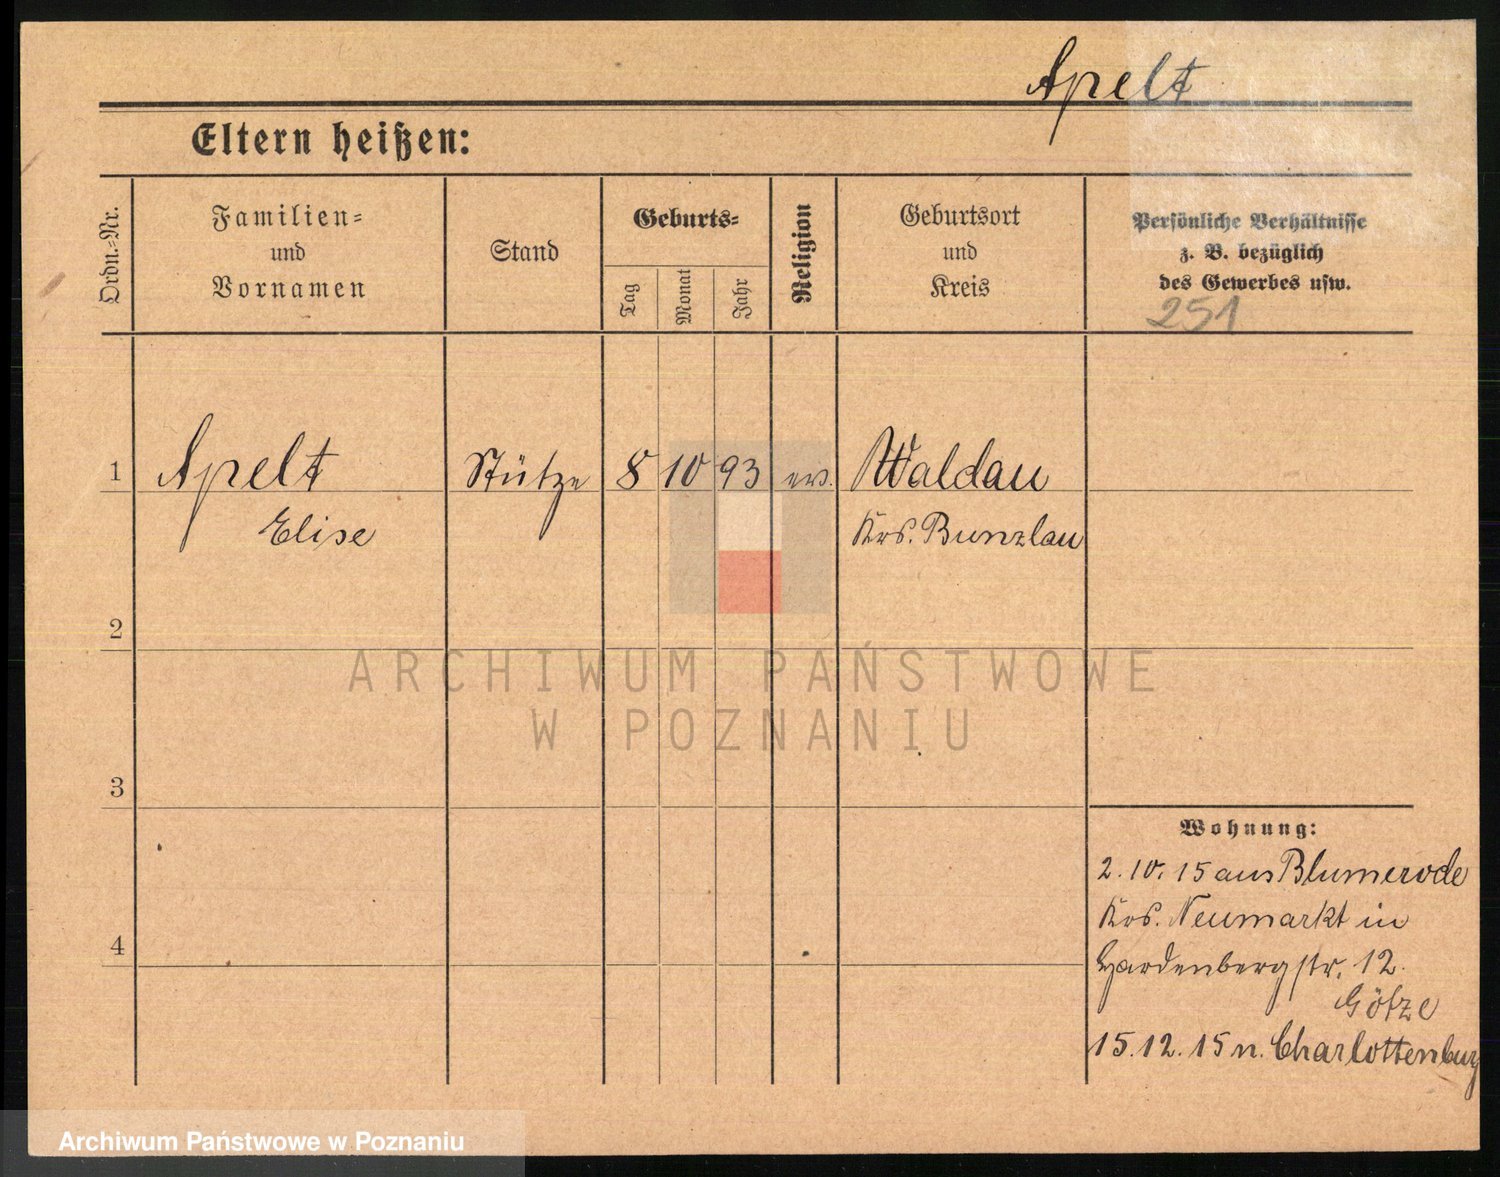 Apelt
Eltern heißen:
Ordn.=Nr.
Familien=
und
Vornamen
Stand
Geburts=
Tag
Monat
Jahr
Religion
Geburtsort
und
Kreis
Persönliche Verhältnisse
z. B. bezüglich
des Gewerbes usw.
251
1 Apelt Stütze 8 10 93 ev. Waldau
Elise Krs. Bunzlau
2
ARCHIWUM PAŃSTWOWE
W POZNANIU
3
Wohnung:
2. 10. 15 aus Blumerode
Krs. Neumarkt in
4
Hardenbergstr. 12.
Götze
15. 12. 15 n. Charlottenburg
Archiwum Państwowe w Poznaniu